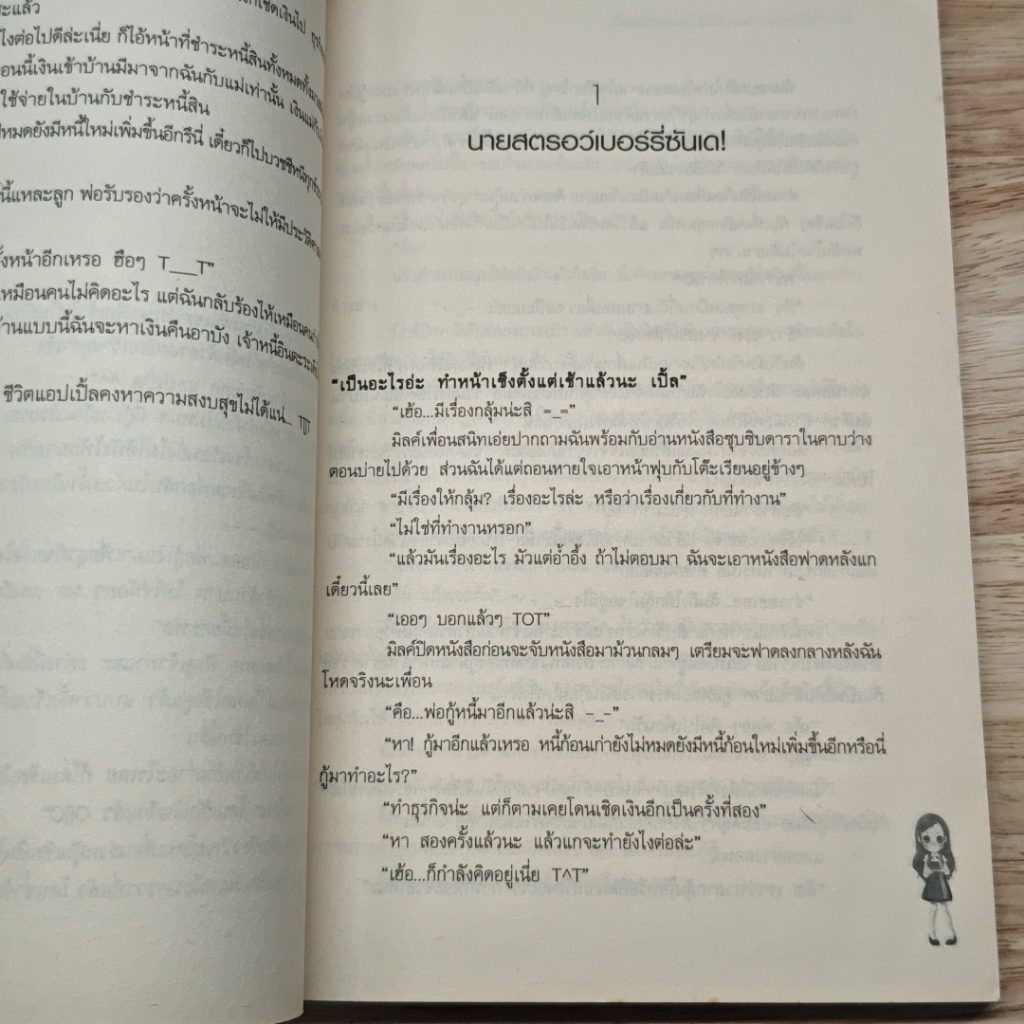 ะแล้ว
ไงต่อไปดีล่ะเนี่ย ก็ไอ้หน้าที่ชำระหนี้สินทั้งหมด
อนนี้เงินเข้าบ้านมีมาจากฉันกับแม่เท่านั้น
ใช้จ่ายในบ้านกับชำระหนี้สิน
หมดยังมีหนี้ใหม่เพิ่มขึ้นอีกรึนี่ เดี๋ยวก็ไปบวชชีหนี
นี้แหละลูก พ่อรับรองว่าครั้งหน้าจะไม่ให้มีประวัติ
ั้งหน้าอีกเหรอ ฮือๆ T___T”
หมือนคนไม่คิดอะไร แต่ฉันกลับร้องไห้เหมือนคน
้านแบบนี้ฉันจะหาเงินคืนอาบัง เจ้าหนี้อินตะระเดีย
ชีวิตแอปเปิ้ลคงหาความสงบสุขไม่ได้แน่... TJT
1
นายสตรอว์เบอร์รี่ซันเด!
“เป็นอะไรอ่ะ ทำหน้าเซ็งตั้งแต่เช้าแล้วนะ เปิ้ล”
“เฮ้อ...มีเรื่องกลุ้มน่ะสิ =_=”
มิลค์เพื่อนสนิทเอ่ยปากถามฉันพร้อมกับอ่านหนังสือซุบซิบดาราในคาบว่าง
ตอนบ่ายไปด้วย ส่วนฉันได้แต่ถอนหายใจเอาหน้าฟุบกับโต๊ะเรียนอยู่ข้างๆ
“มีเรื่องให้กลุ้ม? เรื่องอะไรล่ะ หรือว่าเรื่องเกี่ยวกับที่ทำงาน”
“ไม่ใช่ที่ทำงานหรอก”
“แล้วมันเรื่องอะไร มัวแต่อ้ำอึ้ง ถ้าไม่ตอบมา ฉันจะเอาหนังสือฟาดหลังแก
เดี๋ยวนี้เลย”
“เออๆ บอกแล้วๆ TOT”
มิลค์ปิดหนังสือก่อนจะจับหนังสือมาม้วนกลมๆ เตรียมจะฟาดลงกลางหลังฉัน
โหดจริงนะเพื่อน
“คือ...พ่อกู้หนี้มาอีกแล้วน่ะสิ -_-”
“หา! กู้มาอีกแล้วเหรอ หนี้ก้อนเก่ายังไม่หมดยังมีหนี้ก้อนใหม่เพิ่มขึ้นอีกหรือนี่
กู้มาทำอะไร?”
“ทำธุรกิจน่ะ แต่ก็ตามเคยโดนเชิดเงินอีกเป็นครั้งที่สอง”
“หา สองครั้งแล้วนะ แล้วแกจะทำยังไงต่อล่ะ”
“เฮ้อ...ก็กำลังคิดอยู่เนี่ย T^T”